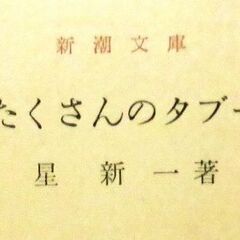 新潮文庫
たくさんのタブー
星新一著